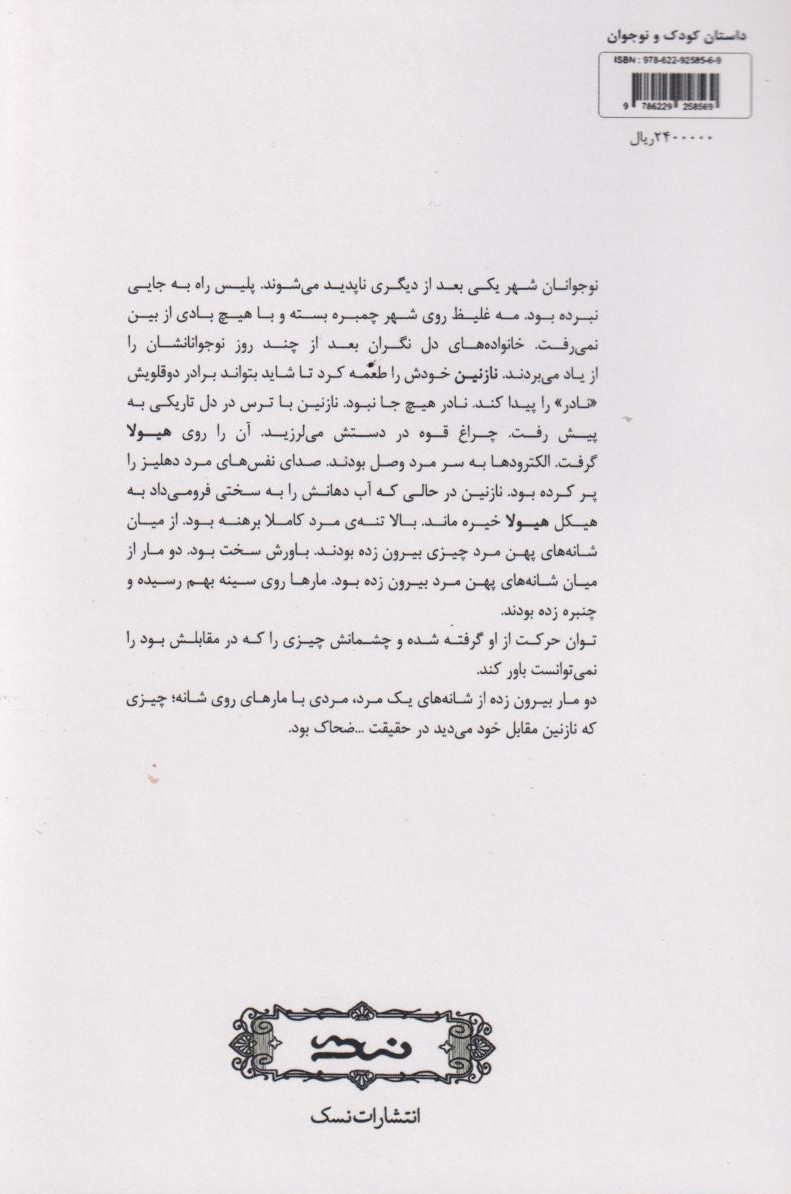 داستان کودک و نوجوان
ISBN : 978-622-92585-6-9
9 786229 258569
۲۴۰۰۰۰۰ریال
نوجوانان شهر یکی بعد از دیگری ناپدید می‌شوند. پلیس راه به جایی
نبرده بود. مه غلیظ روی شهر چمبره بسته و با هیچ بادی از بین
نمی‌رفت. خانواده‌های دل نگران بعد از چند روز نوجوانانشان را
از یاد می‌بردند. نازنین خودش را طعمه کرد تا شاید بتواند برادر دوقلویش
«نادر» را پیدا کند. نادر هیچ جا نبود. نازنین با ترس در دل تاریکی به
پیش رفت. چراغ قوه در دستش می‌لرزید. آن را روی هیولا
گرفت. الکترودها به سر مرد وصل بودند. صدای نفس‌های مرد دهلیز را
پر کرده بود. نازنین در حالی که آب دهانش را به سختی فرومی‌داد به
هیکل هیولا خیره ماند. بالا تنه‌ی مرد کاملا برهنه بود. از میان
شانه‌های پهن مرد چیزی بیرون زده بودند. باورش سخت بود. دو مار از
میان شانه‌های پهن مرد بیرون زده بود. مارها روی سینه بهم رسیده و
چنبره زده بودند.
توان حرکت از او گرفته شده و چشمانش چیزی را که در مقابلش بود را
نمی‌توانست باور کند.
دو مار بیرون زده از شانه‌های یک مرد، مردی با مارهای روی شانه؛ چیزی
که نازنین مقابل خود می‌دید در حقیقت ...ضحاک بود.
نسک
انتشارات نسک